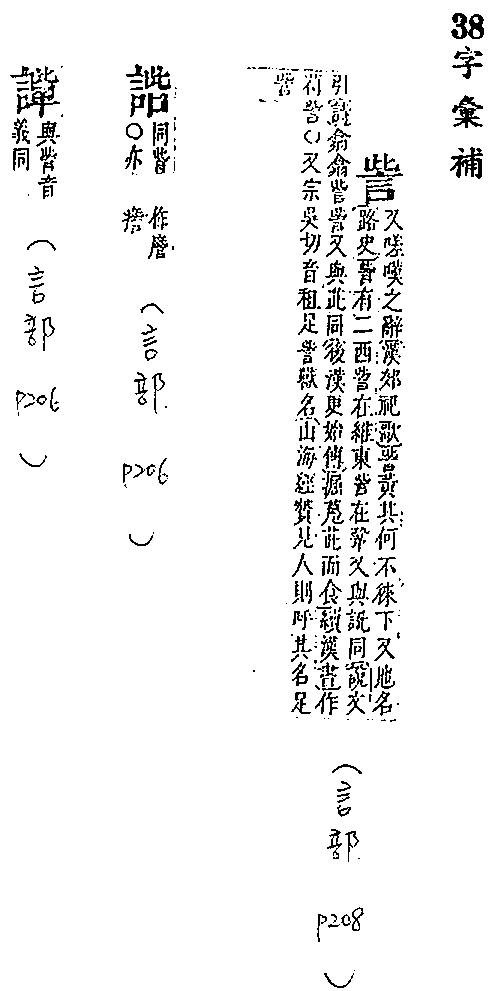 38字彙補
訾
又嗟嘆之辭漢郊祀歌訾黃其何不徠下又地名
路史訾有二西訾在維東訾在鞏又與訿同說文
引詩翕翕訾訾又與此同後漢更始傳掘鳧茈而食續漢書作
符訾○又宗吳切音租足訾獸名山海經贊見人則呼其名足
訾
(言部 p208)
同訾 作
○亦
(言部 p206)
與訾音
義同
(言部 p206)